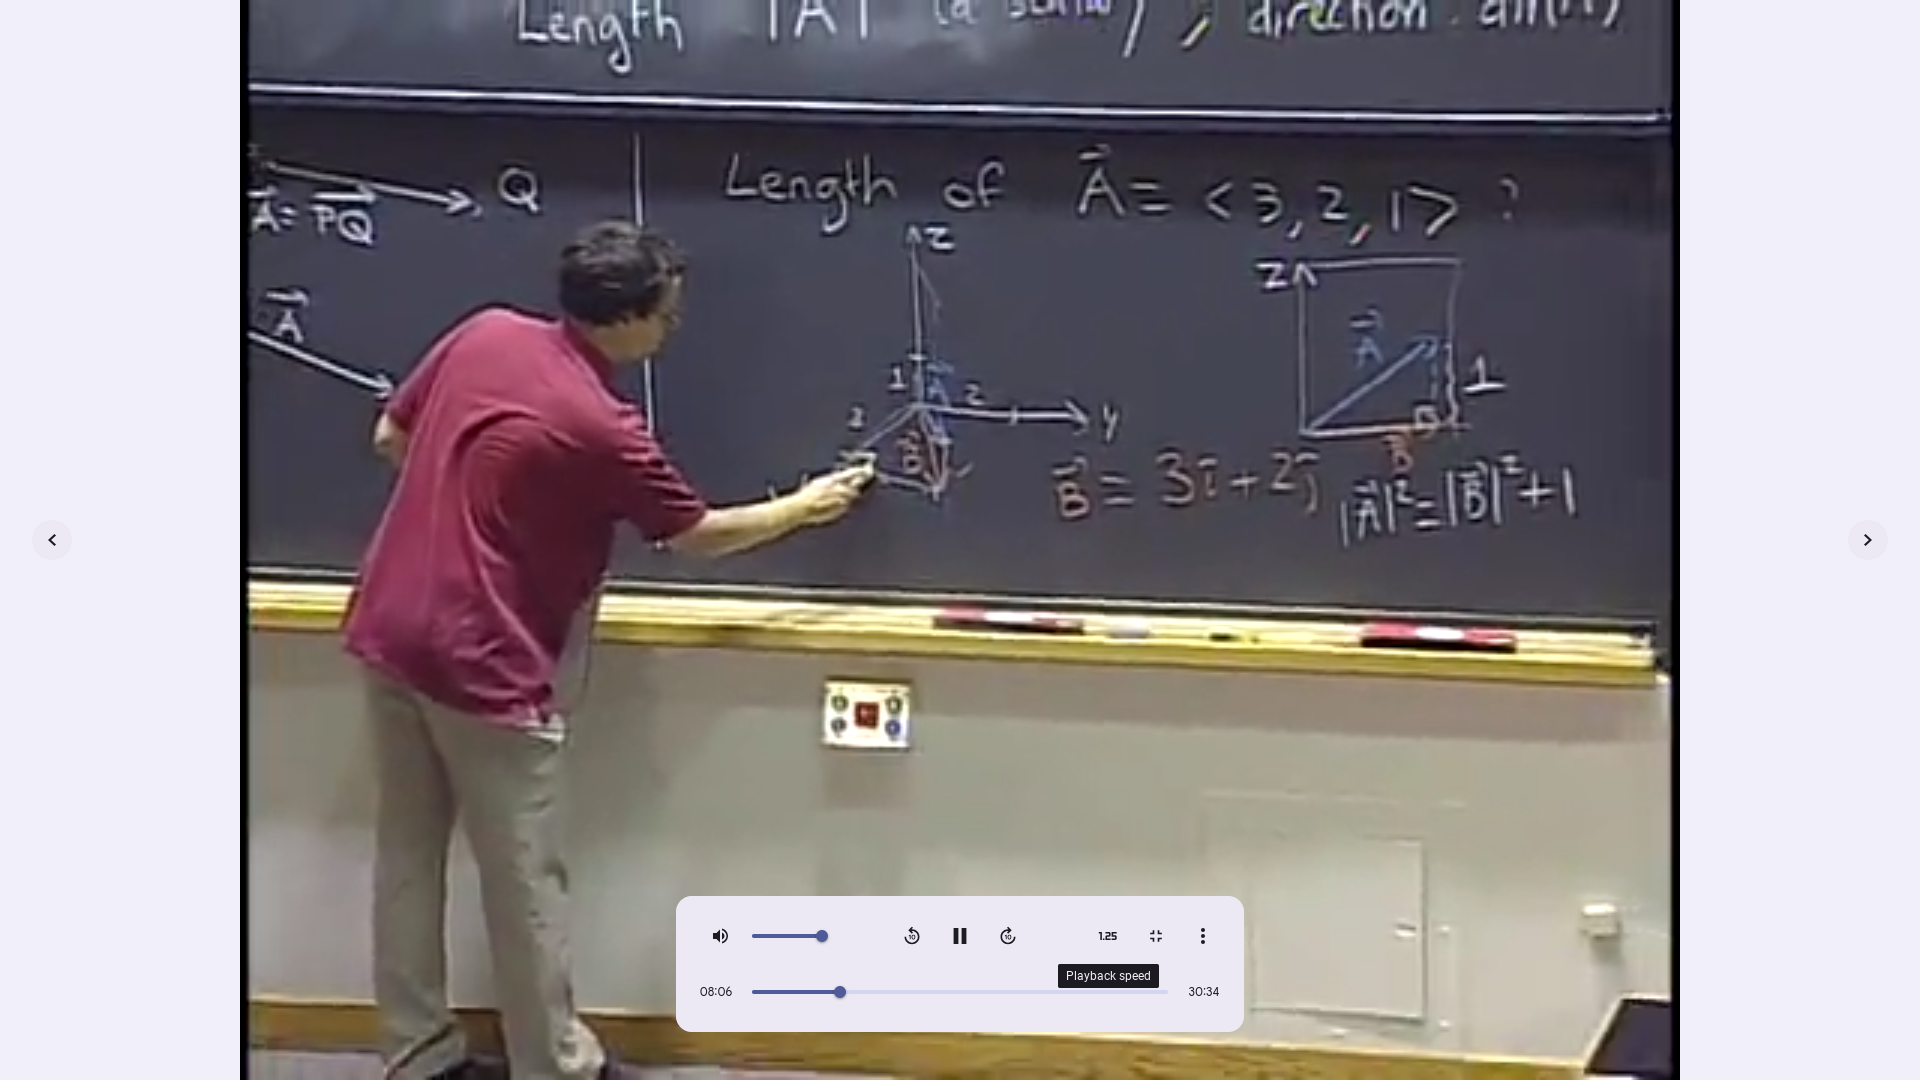 Length |A| (a scalar), direction: dir(A)
Q
A = PQ
A
Length of A = <3, 2, 1> ?
z
1
A
2
y
B
z
A
1
B
B = 3i + 2j
|A|² = |B|² + 1
10
10
1.25
Playback speed
08:06
30:34